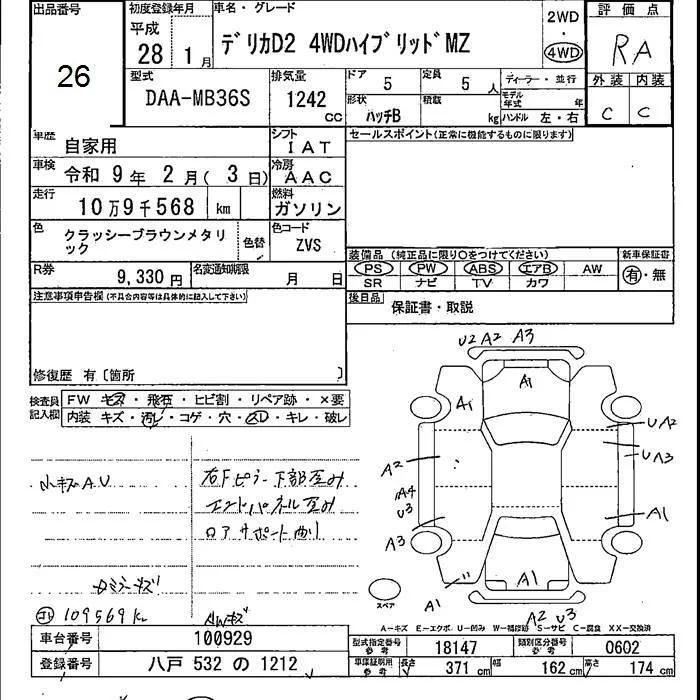 出品番号
26
初度登録年月
平成
28 1月
車名・グレード
デリカD2 4WDハイブリッドMZ
2WD
・
4WD
評価点
RA
外装 内装
C C
型式
DAA-MB36S
排気量
1242 cc
ドア 5
定員 5人
ディーラー・並行
モデル年式 年
形状 ハッチB
積載 kg
ハンドル 左・右
車歴 自家用
シフト IAT
セールスポイント(正常に機能するものに限ります)
車検 令和 9年 2月( 3日)
冷房 AAC
走行 10万9千568 km
燃料 ガソリン
色 クラッシーブラウンメタリック
色替
色コード ZVS
R券 9,330円
名変通知期限 月 日
装備品 (純正品に限り○をつけてください)
新車保証書
PS PW ABS エアB AW
有・無
SR ナビ TV カワ
注意事項申告欄(不具合内容等は具体的に記入して下さい)
後日品 保証書・取説
修復歴 有〔箇所 〕
検査員記入欄
FW キズ・飛石・ヒビ割・リペア跡・×要
内装 キズ・汚れ・コゲ・穴・スレ・キレ・破レ
小キズAU
右Fピラー下部歪み
エンドパネル歪み
ロアサポート曲り
ミラーキズ
109569km
AWキズ
U2 A2 A3
A1
A1
UA2
UA3
A2
A4
U3
A3
A1
A1
A1
A2 U3
スペア
A-キズ E-エクボ U-凹み W-補修跡 S-サビ C-腐食 XX-交換済
車台番号 100929
登録番号 八戸 532 の 1212
型式指定番号 参考 18147
類別区分番号 参考 0602
車庫証明用参考 長さ 371cm 幅 162cm 高さ 174cm